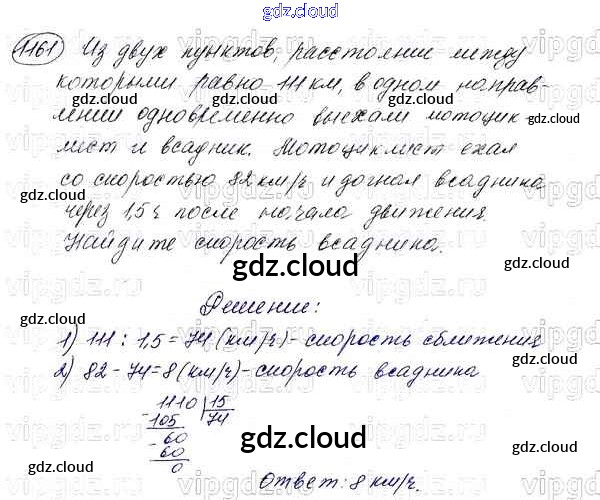 gdz.cloud
1161 Из двух пунктов, расстояние между
которыми равно 111 км, в одном направ-
лении одновременно выехали мотоцик-
лист и всадник. Мотоциклист ехал
со скоростью 82 км/ч и догнал всадника
через 1,5 ч после начала движения
Найдите скорость всадника.
Решение:
1) 111 : 1,5 = 74 (км/ч) - скорость сближения
2) 82 - 74 = 8 (км/ч) - скорость всадника
1110 | 15
- 105 74
- 60
60
0
Ответ: 8 км/ч.
gdz.cloud
gdz.cloud
gdz.cloud
gdz.cloud
gdz.cloud
gdz.cloud
gdz.cloud
gdz.cloud
gdz.cloud
gdz.cloud
gdz.cloud